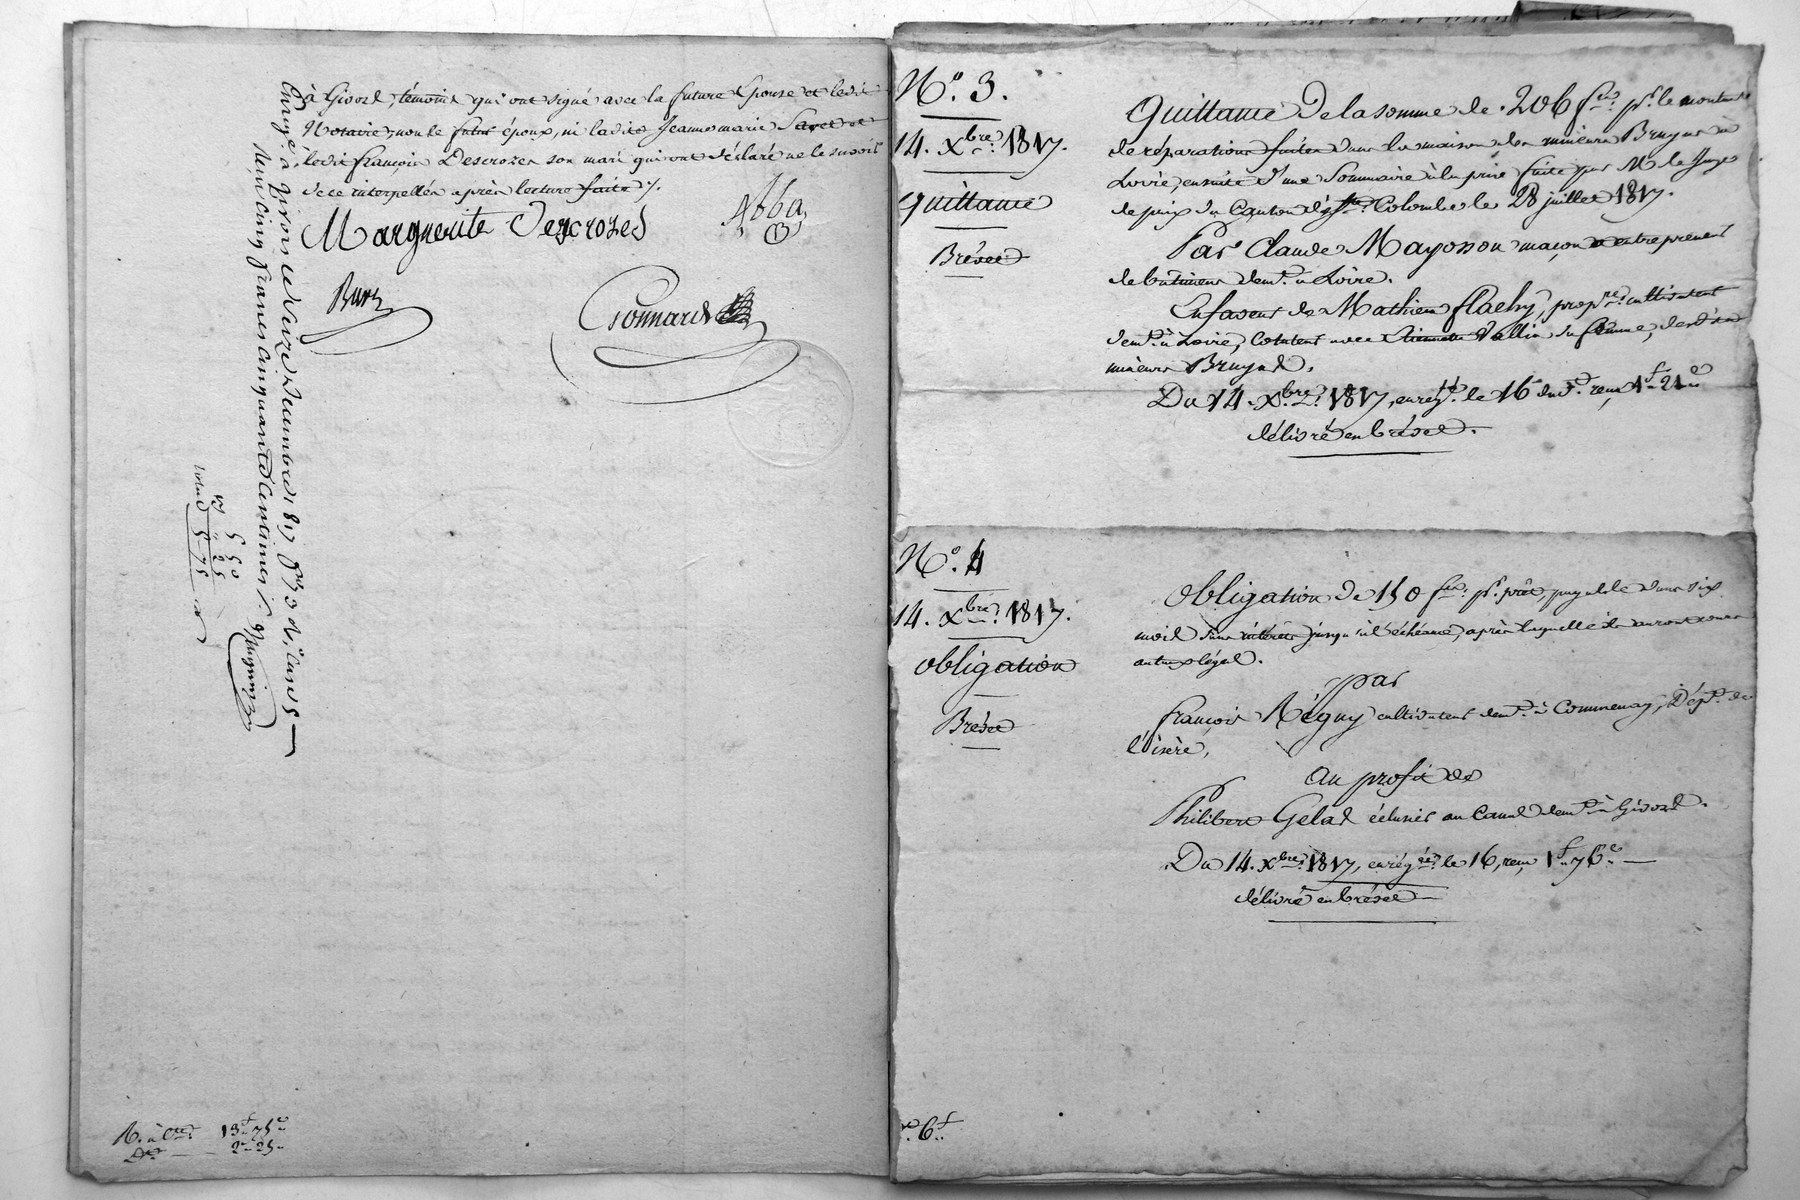 à Givors, témoins qui ont signé avec la future Epouse et ledit
Notaire, non le futur époux, ni ladite Jeanne marie
ledit françois Descrozes son mari qui ont déclaré ne le savoir
de ce interpellés après lecture faite ./.
Marguerite Descrozes
Bury
Connard
Enrgé. à Givors le seize décembre 1817 f° 73 v° Case 5
Reçu Cinq francs cinquante Centimes
5 50
55
5-75
13f 75c
2 " 25 "
N°. 3.
14. Xbre. 1817.
Quittance
Brévet
Quittance de la somme de 206 frs. pr. le montant
de réparations faites dans la maison des mineurs Bruyas à
Loire, ensuite d'une Sommaire à la prise faite par M. le Juge
de paix du Canton de Ste. Colombe le 28 juillet 1817.
Par Claude Mayosson maçon et entrepreneur
de bâtimens demt. à Loire.
En faveur de Mathieu flachy, propre. cultivateur
demt. à Loire, Cotuteur avec Etiennette Vallin sa femme, desdits
mineurs Bruyas.
Du 14. Xbre. 1817, enregt. le 16 dudt. reçu 1f 21c
délivré en brévet.
N°. 4
14. Xbre. 1817.
Obligation
Brévet
Obligation de 150 frs. pr. prêt, payable dans six
mois sans intérêts jusqu'à l'échéance, après laquelle ils auront cours
au taux légal.
par
françois Régny cultivateur demt. à Communay, Dépt. de
l'isère,
Au profit de
Philibert Gelas éclusier au Canal demt. à Givors.
Du 14. Xbre. 1817, enrégé. le 16, reçu 1f 76c
délivré en brévet
6f